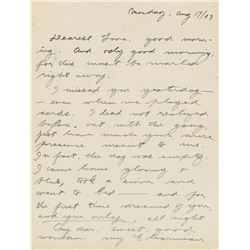 Monday, Aug 17/03
Dearest Love, good morn-
ing. And only good morning,
for this must be mailed
right away.
I missed you yesterday -
- even when we played
cards. I had not realized
before, out with the gang,
just how much your mere
presence meant to me.
In fact, the day was empty.
I came home gloomy &
blue, took a swim and
went to bed - and for
the first time dreamed of you
and you only - all night.
My dear, sweet, good
woman, my